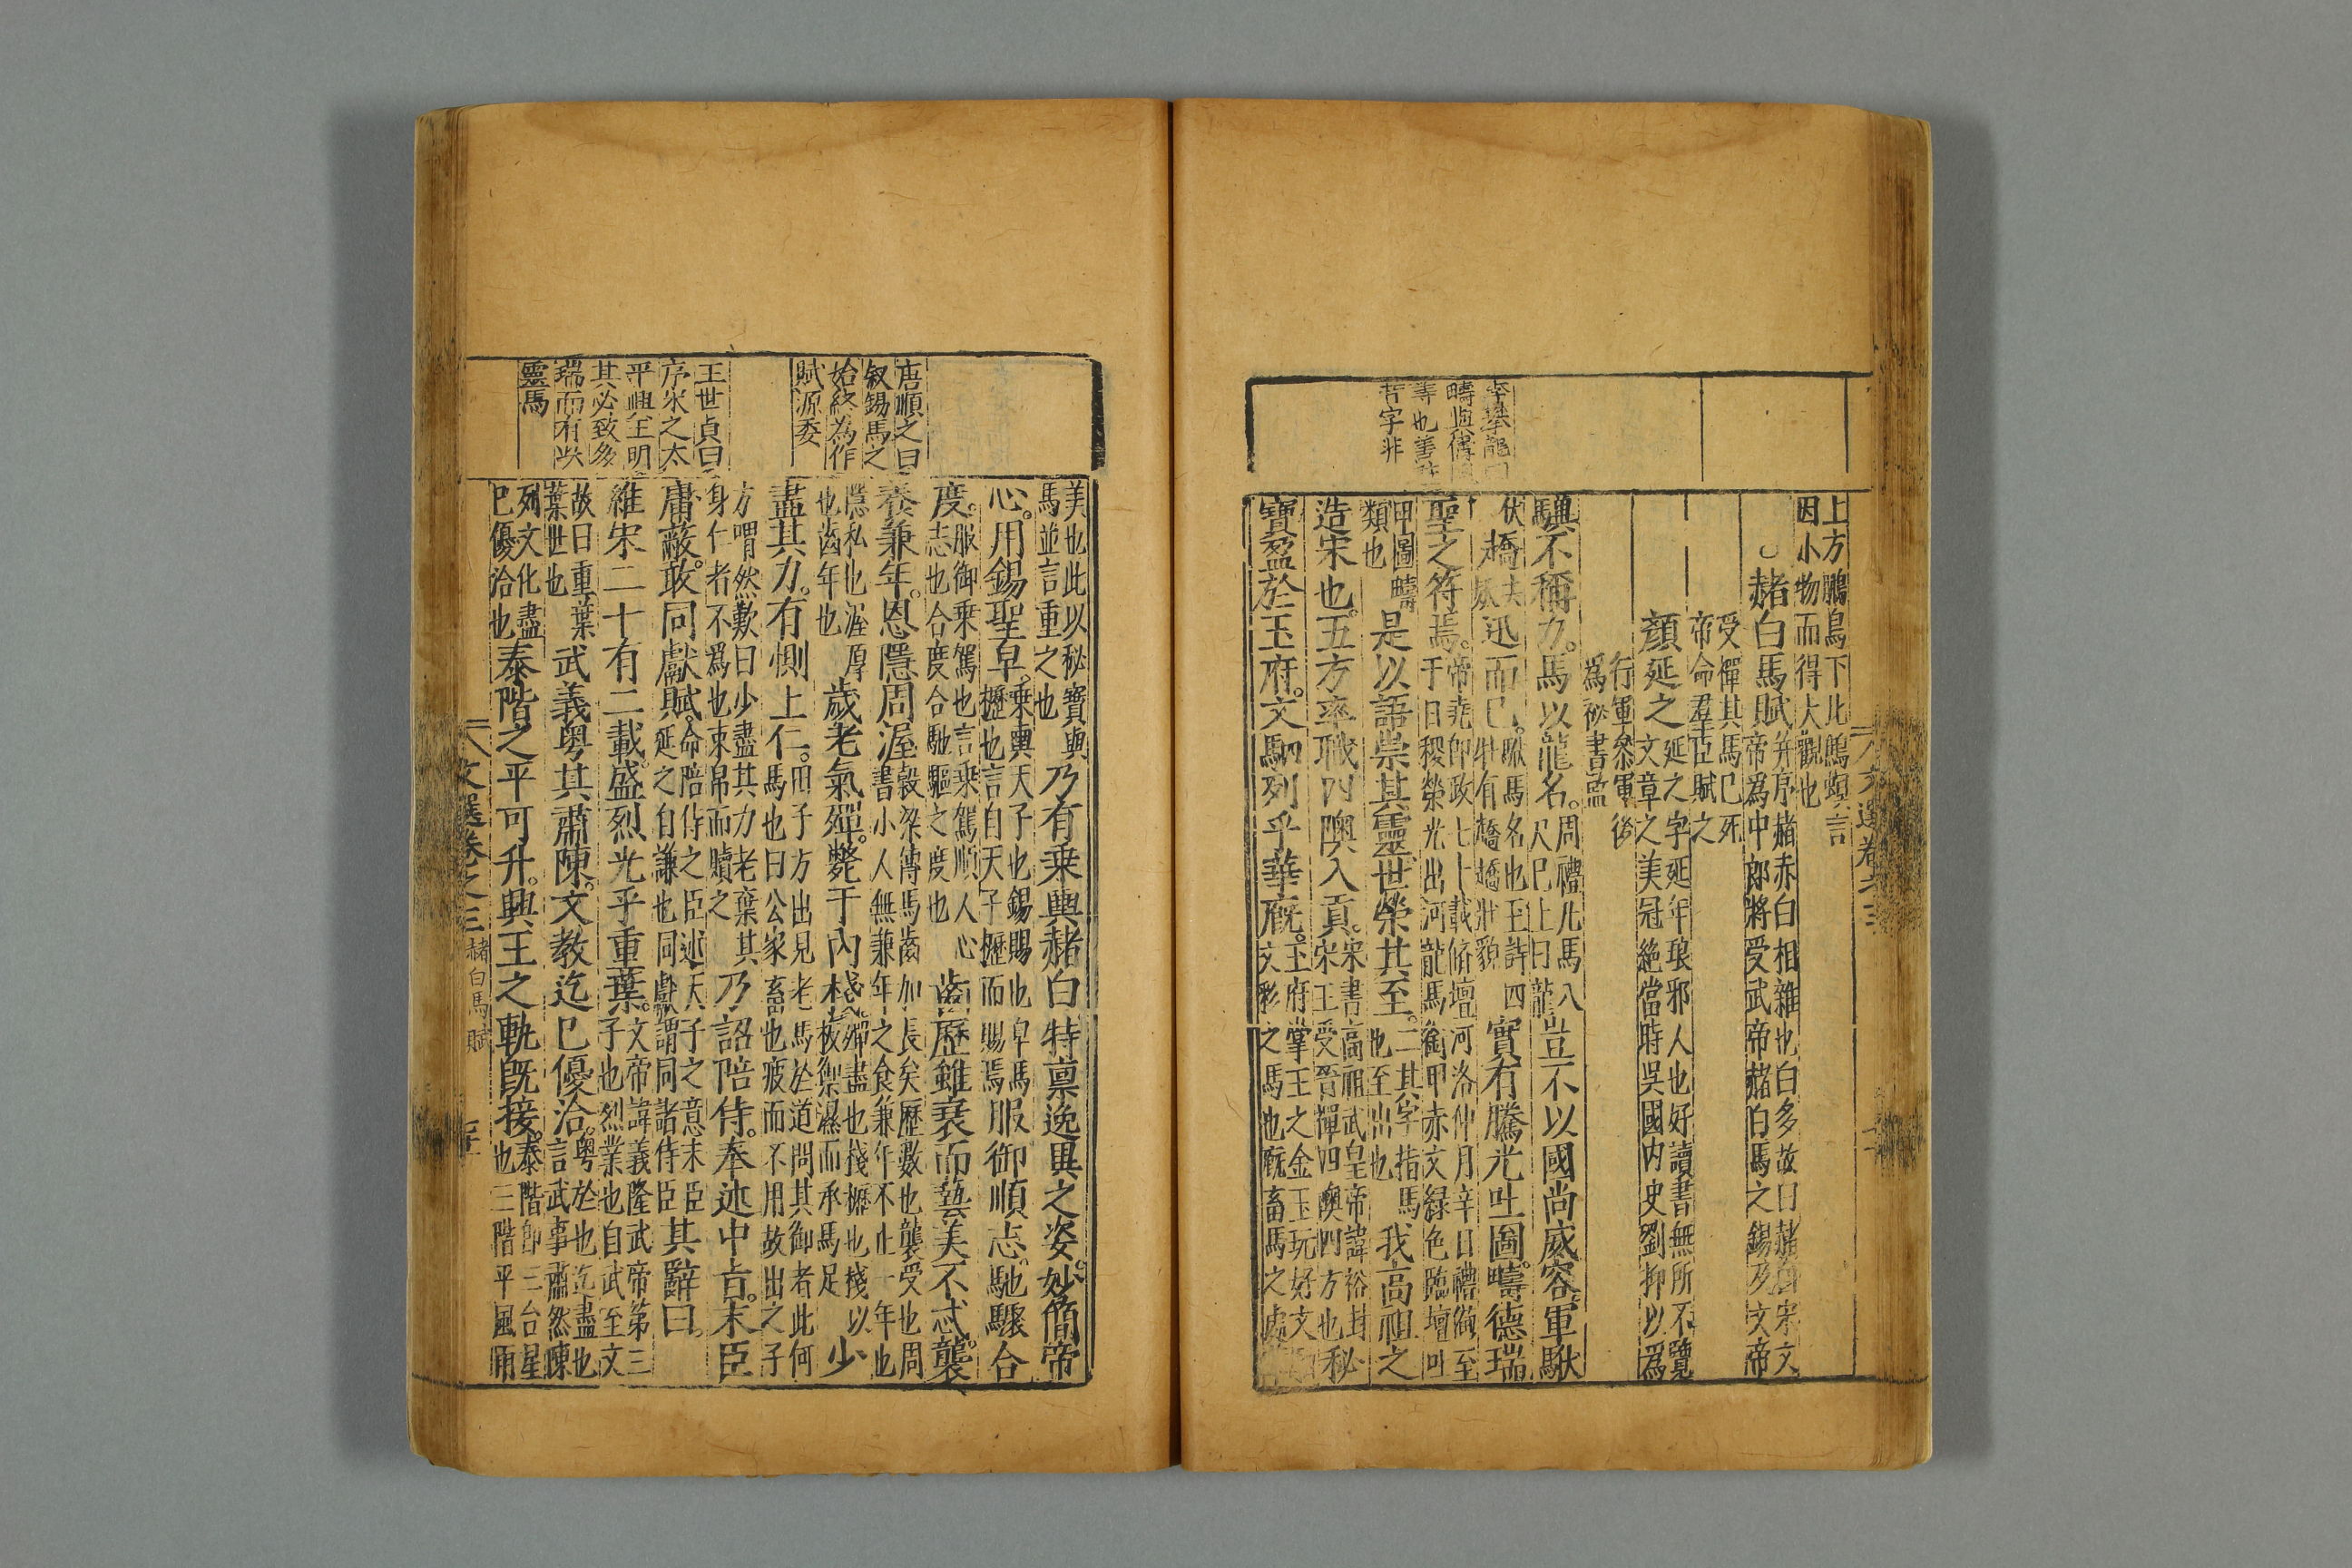 上方鵬鳥下此鷦螟言
因小物而得大觀也
○赭白馬賦并序
赭赤白相雜也白多故曰赭白宋文
帝爲中郎將受武帝赭白馬之錫及文帝
受禪其馬已死
帝命羣臣賦之
顏延之
延之字延年琅邪人也好讀書無所不覽
文章之美冠絕當時吳國内史劉抑以爲
行軍參軍後
爲祕書監
驥不稱力。馬以龍名。
周禮凡馬八
尺已上曰龍
豈不以國尚威容。軍馱
伏
趫
夫
迅而已。
馱馬名也毛詩四
牡有驕驕壯貌
實有騰光吐圖。疇德瑞
聖之符焉。
帝堯即政七十載脩壇河洛仲月辛日禮備至
于日稷榮光出河龍馬銜甲赤文緑色臨壇吐
甲圖疇
類也
是以語崇其靈世榮其至。
二其字指馬
也至出也
我高祖之
造宋也。五方率職四隩入貢。
宋書高祖武皇帝諱裕封
宋王受晉禪四隩四方也
秘
寶盈於玉府。文駟列乎華廐。
玉府掌王之金玉玩好文
文彩之馬也廐畜馬之處
疇與儔
等也善
哲字非
文選卷之三
美也此以秘寶與
馬並言重之也
乃有乗輿赭白特禀逸異之姿。妙簡帝
心。用錫聖皁。
乗輿天子也錫賜也皁馬
櫪也言自天子櫪而賜焉
服御順志。馳驟合
度。
服御乗駕也言乗駕順人心
志也合度合馳驅之度也
齒歷雖衰而藝美不忒。襲
養兼年。恩隱周渥
穀梁傳馬齒加長矣歷數也襲受也周
書小人無兼年之食兼年不止一年也
隱私也渥厚
也齒年也
歳老氣殫。斃于内棧。
殫盡也棧櫪也棧以
板禦濕而承馬足
少
盡其力。有惻上仁。
田子方出見老馬於道問其御者此何
馬也曰公家畜也疲而不用故出之子
方喟然歎曰少盡其力老棄其
身仁者不爲也束帛而贖之
乃詔陪侍。奉述中旨。末臣
庸蔽。敢同獻賦。
命陪侍之臣述天子之意末臣
延之自謙也同獻謂同諸侍臣
其辭曰。
維宋二十有二載。盛烈光乎重葉。
文帝諱義隆武帝第三
子也烈業也自武至文
故曰重葉
葉世也
武義粵其肅陳。文教迄已優洽。
粤於也迄盡也
言武事肅然陳
列文化盡
已優洽也
泰階之平可升。興王之軌旣接。
泰階即三台星
也三階平風雨
唐順之曰
叙錫馬之
始終為作
賦源委
王世貞曰
序宋之太
平興王明
其必致多
瑞而有此
靈馬
文選卷之三
赭白馬賦